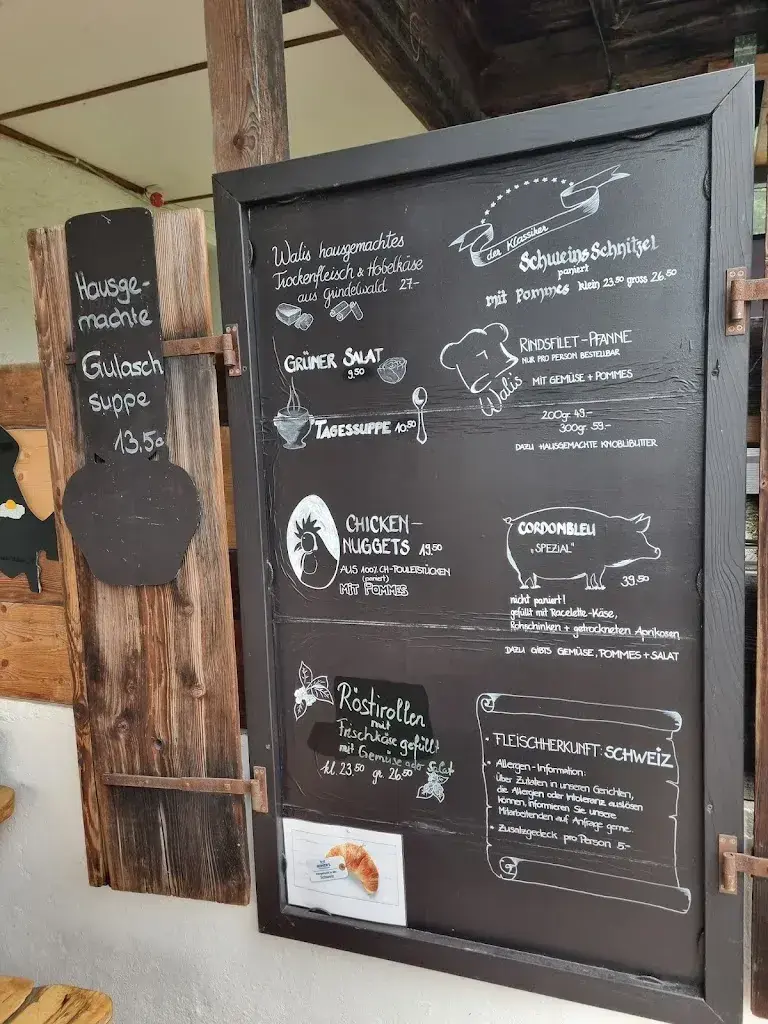 Hausge-
machte
Gulasch
suppe
13,50
Walis hausgemachtes
Trockenfleisch & Hobelkäse
aus Grindelwald 27.-
der Klassiker
Schweins Schnitzel
paniert
mit Pommes klein 23.50 gross 26.50
GRÜNER SALAT
9.50
TAGESSUPPE 10.50
Walis
RINDSFILET-PFANNE
NUR PRO PERSON BESTELLBAR
MIT GEMÜSE + POMMES
200gr 49.-
300gr 59.-
DAZU HAUSGEMACHTE KNOBLIBUTTER
CHICKEN-
NUGGETS 19.50
AUS 100% CH-POULETSTÜCKEN
(paniert)
MIT POMMES
CORDONBLEU
„SPEZIAL"
39.50
nicht paniert!
gefüllt mit Raclette-Käse,
Rohschinken + getrockneten Aprikosen
DAZU GIBTS GEMÜSE, POMMES + SALAT
Röstirollen
mit
Frischkäse gefüllt
mit Gemüse oder Salat
kl. 23.50 gr. 26.50
• FLEISCHHERKUNFT: SCHWEIZ
• Allergen-Information:
Über Zutaten in unseren Gerichten,
die Allergien oder Intoleranz auslösen
können, informieren Sie unsere
Mitarbeitenden auf Anfrage gerne.
• Zusatzgedeck pro Person 5.-